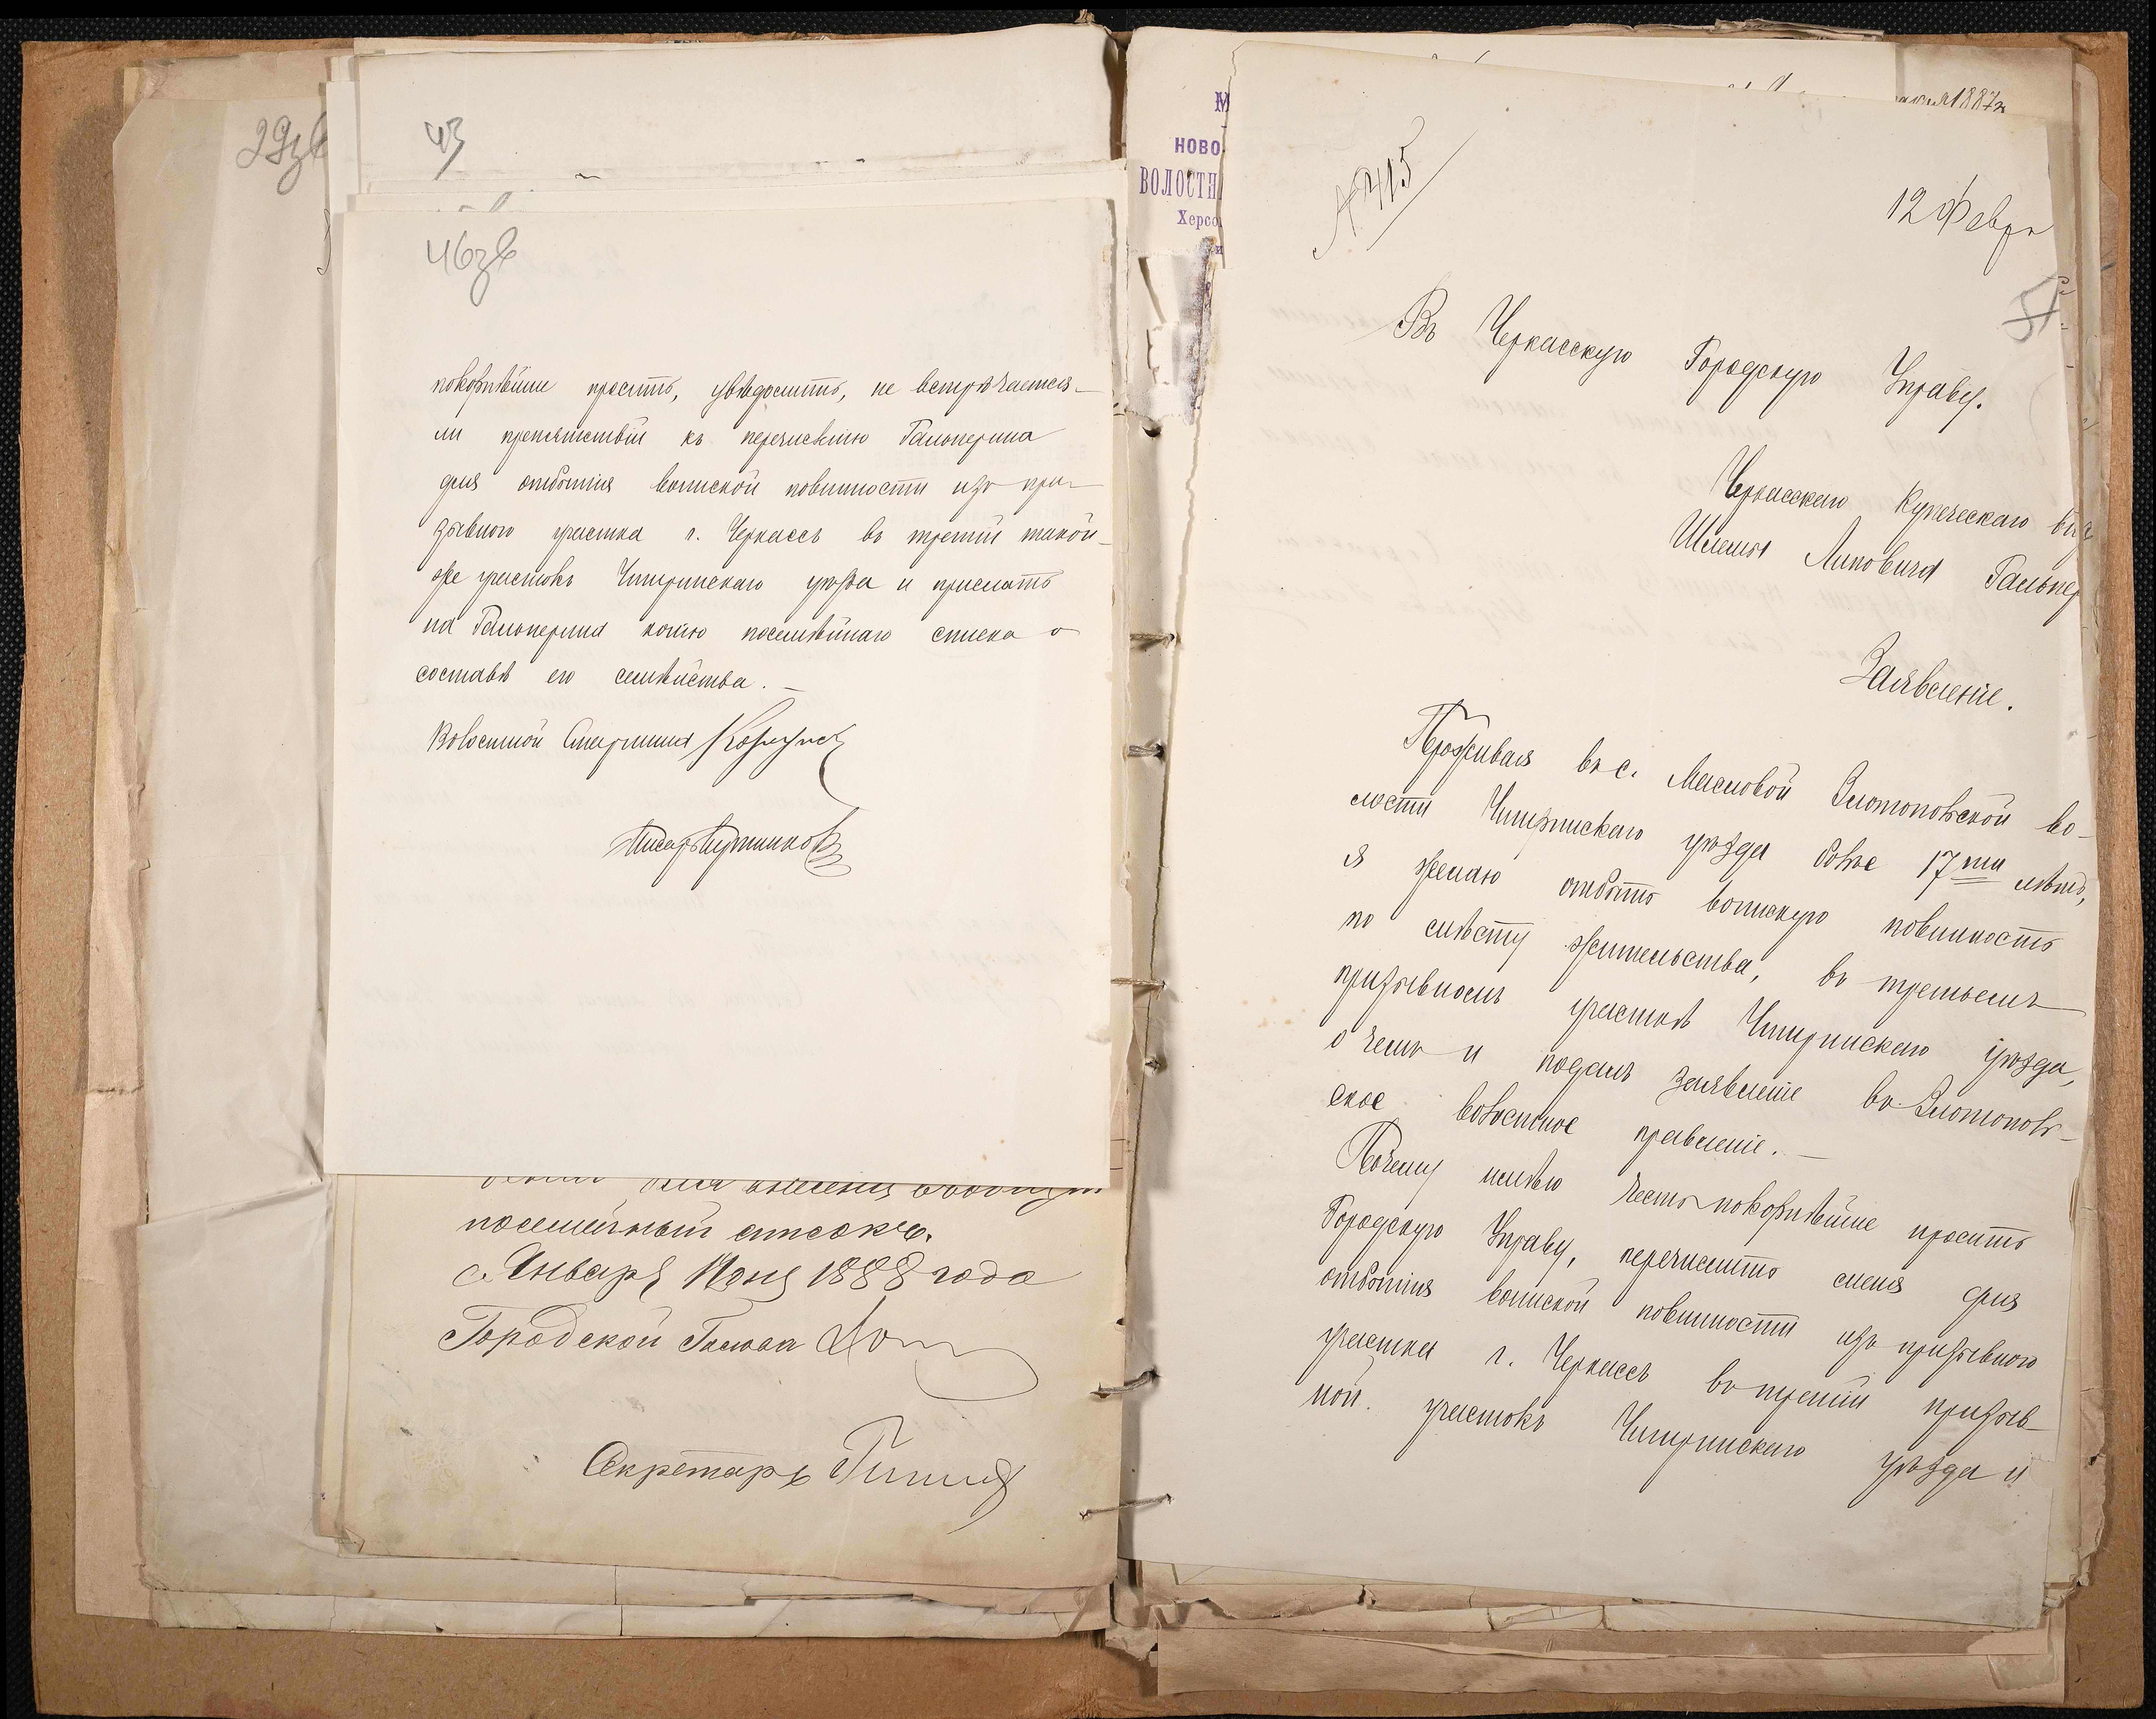 29зв
43
46зв
покорнѣйше просить, увѣдомить, не встрѣчается-
ли препятствій къ перечисленію Гальперина
для отбытія воинской повинности изъ при-
зывного участка г. Черкассъ въ третій такой-
же участокъ Чигиринскаго уѣзда и прислать
на Гальперина копію посемѣйнаго списка о
составѣ его семѣйства. —
Волостной Старшина
Писарь
для внесенія въ
посемейный списокъ.
Января дня 1888 года
Городской Голова
Секретарь
НОВО
ВОЛОСТН
Херсо
1887
№ 415
12 Февра
51
Въ Черкасскую Городскую Управу.
Черкасскаго Купеческаго
Шлемы Липовича Гальпер
Заявленіе.
Проживая въ с. Масловой Златопольской во-
лости Чигиринскаго уѣзда болѣе 17ти лѣтъ,
я желаю отбыть воинскую повинность
по мѣсту жительства, въ третьемъ
призывномъ участкѣ Чигиринскаго уѣзда,
о чемъ и подалъ заявленіе въ Златополь-
ское волостное правленіе. —
Почему имѣю честь покорнѣйше просить
Городскую Управу, перечислить меня для
отбытія воинской повинности изъ призывного
участка г. Черкассъ въ третій призыв-
ной участокъ Чигиринскаго уѣзда и